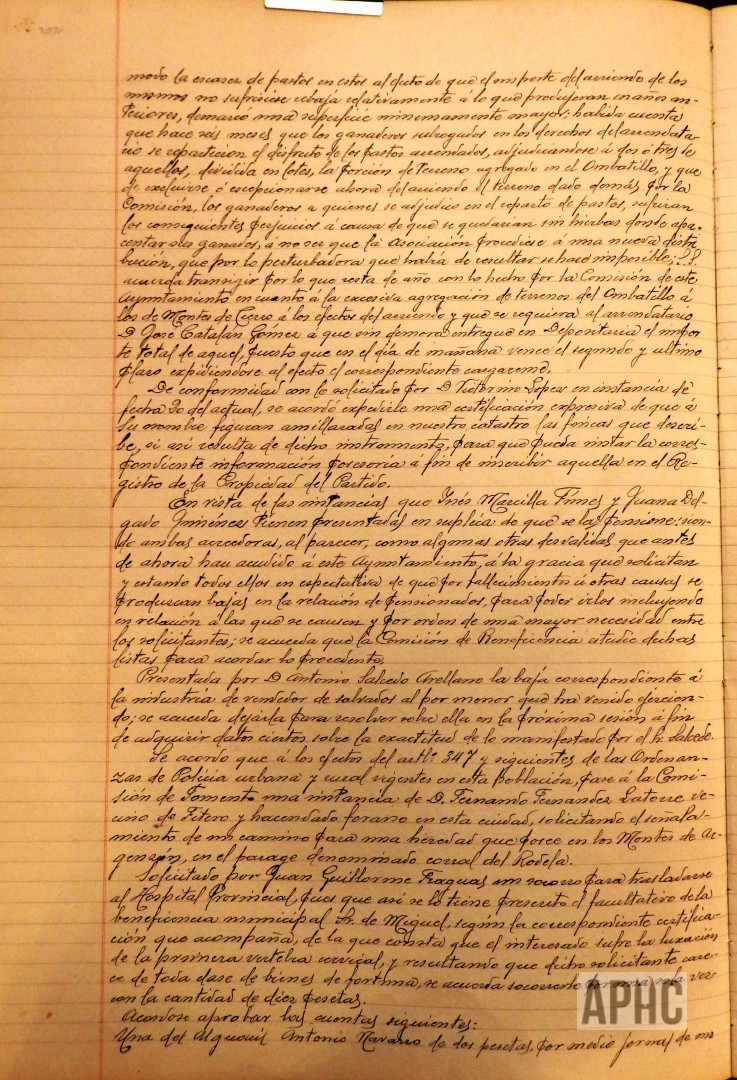 modo la escasez de pastos en estos al efecto de que el importe del arriendo de los
mismos no sufriese rebaja relativamente á lo que produjeran en años an-
teriores, demarcó una superficie inmensamente mayor; habida cuenta
que hace seis meses que los ganaderos subrogados en los derechos del arrendata-
rio se repartieron el disfrute de los pastos arrendados, adjudicandose á dos ó tres de
aquellos, dividida en lotes, la porción de terreno agregado en el Ombatillo, y que
de excluirse ó excepcionarse ahora del arriendo el terreno dado demás por la
Comisión, los ganaderos a quienes se adjudicó en el reparto de pastos, sufrirán
los consiguientes perjuicios á causa de que se quedarian sin hierbas donde apa-
centar sus ganados, á no ser que la Asociación procediese á una nueva distri-
bución, que por lo perturbadora que habría de resultar se hace imposible; S.S.
acuerda transigir por lo que resta de año con lo hecho por la Comisión de este
Ayuntamiento en cuanto á la excesiva agregación de terrenos del Ombatillo á
los de Montes de Cierzo á los efectos del arriendo y que se requiera al arrendatario
D. José Catalán Gómez á que sin demora entregue en Depositaria el impor-
te total de aquel, puesto que en el día de mañana vence el segundo y ultimo
plazo expidiendose al efecto el correspondiente cargareme.
De conformidad con lo solicitado por D. Victorino Lopez en instancia de
fecha 20 del actual, se acordó expedirle una certificación expresiva de que á
su nombre figuran amillaradas en nuestro catastro las fincas que describe
be, si asi resulta de dicho instrumento, para que pueda instar la corres-
pondiente información posesoria á fin de inscribir aquella en el Re-
gistro de la Propiedad del Partido.
En vista de las instancias que Inés Marcilla Fimes y Juana Del-
gado Jiménez tienen presentadas en suplica de que se las pensione; sien-
do ambas acreedoras, al parecer, como algunas otras desvalidas que antes
de ahora han acudido á este Ayuntamiento, á la gracia que solicitan
y estando todos ellos en espectativa de que por fallecimiento ú otras causas se
produzcan bajas en la relación de pensionados, para poder irlos incluyendo
en relación á las que se causen y por orden de una mayor necesidad entre
los solicitantes; se acuerda que la Comisión de Beneficencia estudie dichas
listas para acordar lo procedente.
Presentada por D. Antonio Salcedo Arellano la baja correspondiente á
la industria de vendedor de salvados al por menor que ha venido ejercien-
do; se acuerda dejarla para resolver sobre ella en la próxima sesión á fin
de adquirir datos ciertos sobre la exactitud de lo manifestado por el Sr. Salcedo.
Se acordó que á los efectos del artº. 347 y siguientes de las Ordenan-
zas de Policia urbana y rural vigentes en esta Población, pase á la Comi-
sión de Fomento una instancia de D. Fernando Fernandez Latorre ve-
cino de Fitero y hacendado forano en esta ciudad, solicitando el señala-
miento de un camino para una heredad que posee en los Montes de Ar-
genzón, en el parage denominado corral del Rodela.
Solicitado por Juan Guillerme Fraguas un socorro para trasladarse
al Hospital Provincial, pues que asi se lo tiene prescrito el facultativo de la
beneficencia municipal Sr. de Miguel, según la correspondiente certifica-
ción que acompaña, de la que consta que el interesado sufre la luxación
de la primera vertebra cervical, y resultando que dicho solicitante care-
ce de toda clase de bienes de fortuna, se acuerda socorrerle por una sola vez
con la cantidad de diez pesetas.
Acordose aprobar las cuentas siguientes:
Una del Alguacil Antonio Navarro de dos pesetas, por medio jornal de un
APHC